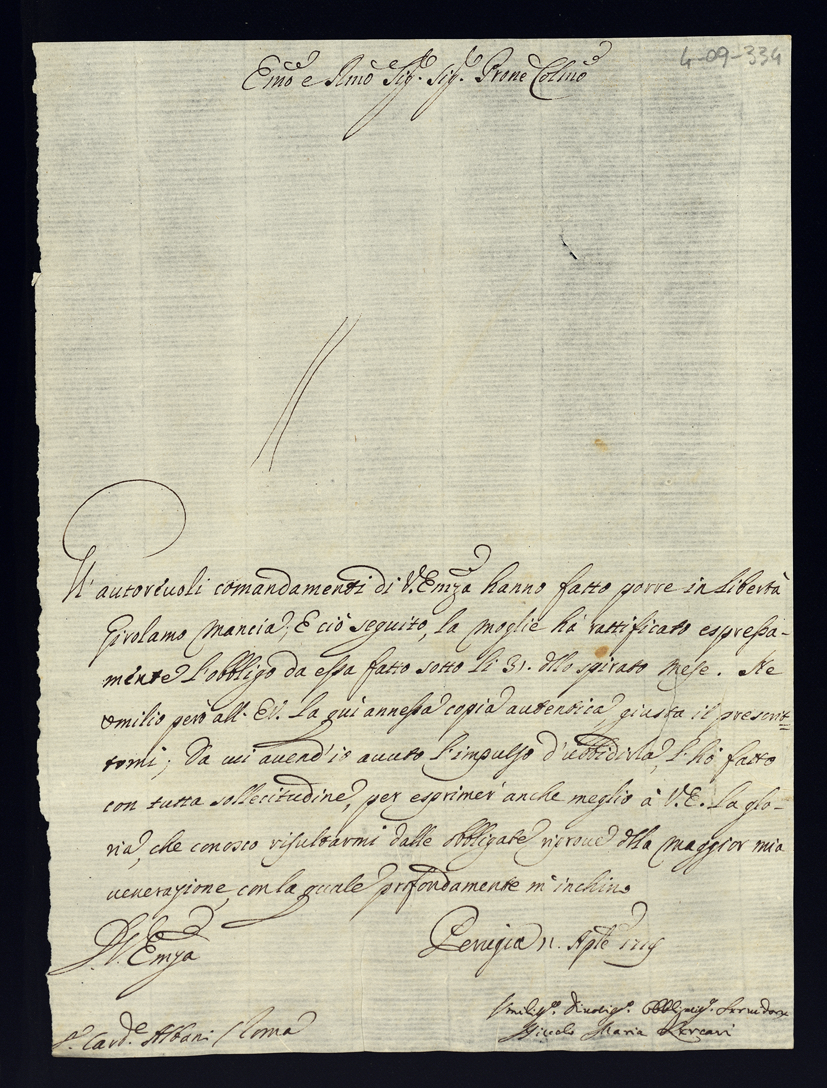 4-09-334
Emo e Rmo Sig. Sig. Prone Colmo
Gl'autorevoli comandamenti di V. Emza hanno fatto porre in libertà
Girolamo Mancia; E ciò seguito, la moglie hà rattificato espressa-
mente l'obbligo da essa fatto sotto li 31. dllo spirato Mese. Ne
umilio però all'E.V. la qui annessa copia autentica giusta il prescrit=
tomi; Da cui avend'io avuto l'impulso d'ubbidirla, l'hò fatto
con tutta sollecitudine, per esprimer' anche meglio à V.E. la glo-
ria, che conosco risultarmi dalle obbligate riprove dlla maggior mia
venerazione, con la quale profondamente m'inchino
D. V. Emza
Perugia 11. Aple 1719
Umiligo. Divotigo. Obbligo. Servidore
Niccolò Maria Lercari
Sr. Card.e Albani / Roma